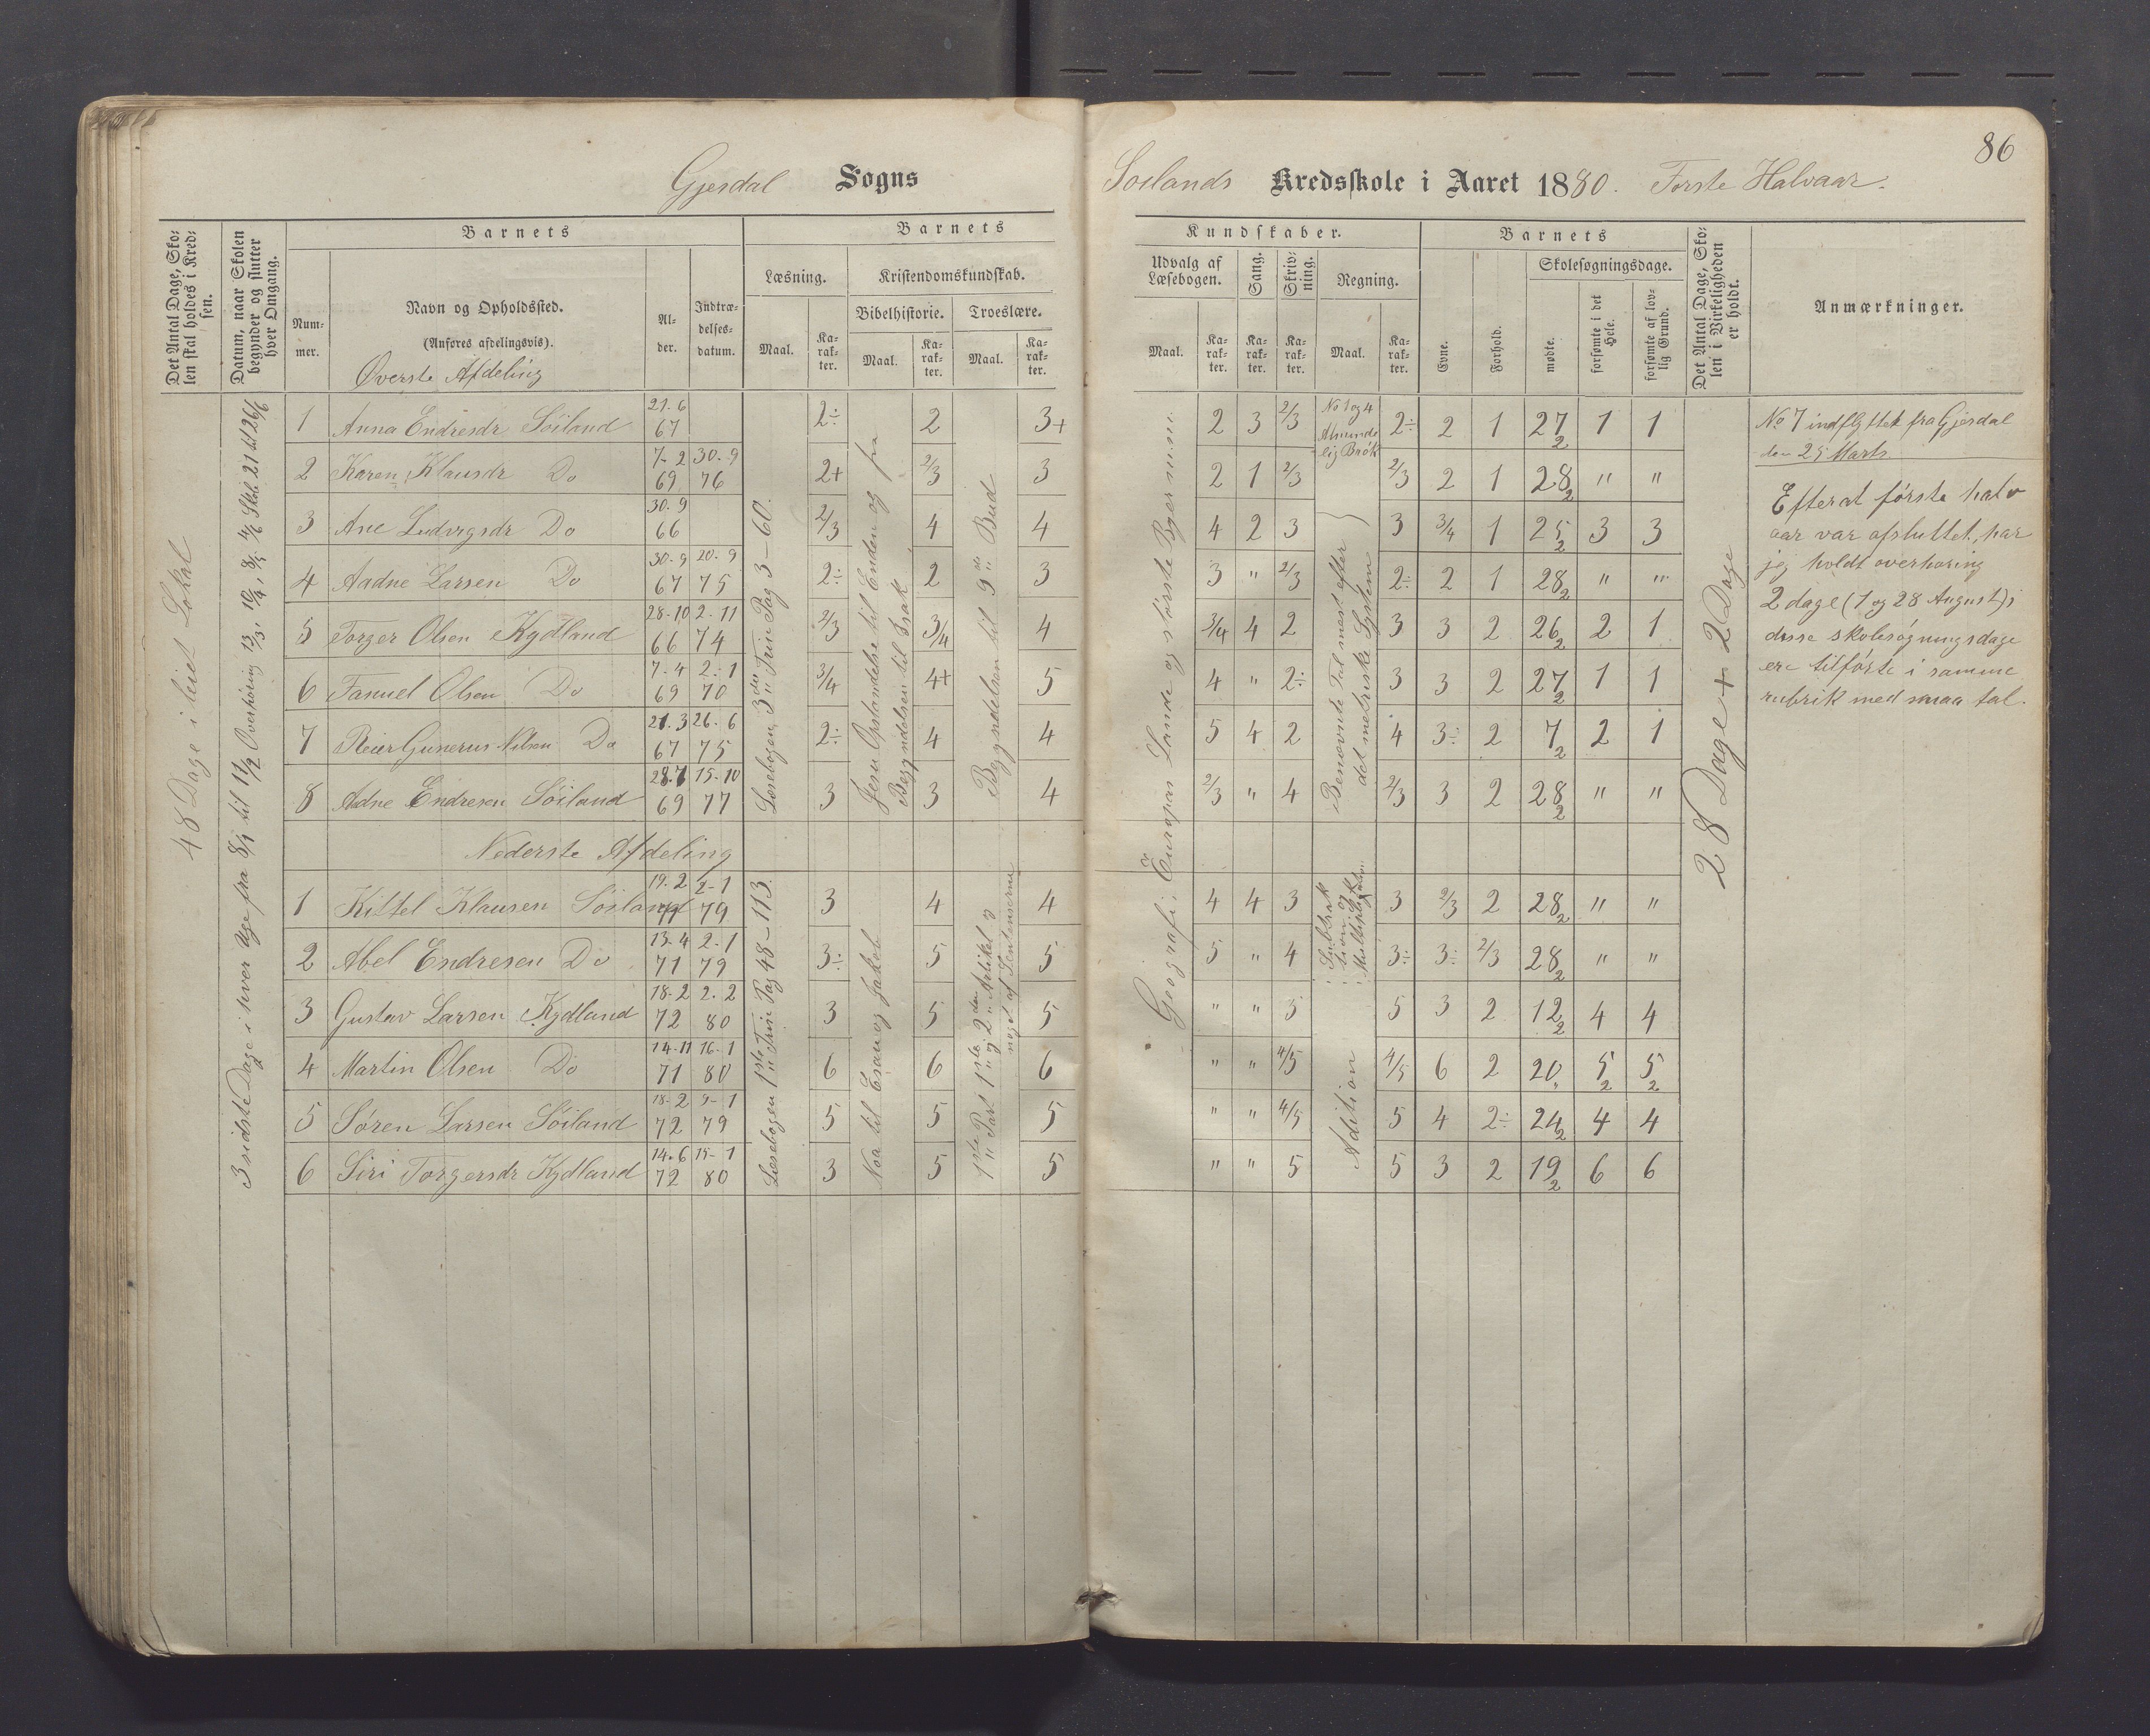 86
Gjesdal Sogns
Soilands Kredsskole i Aaret 1880. Første Halvaar.
Det Antal Dage, Sko-
len skal holdes i Kred-
sen.
Datum, naar Skolen
begynder og slutter
hver Omgang.
Barnets
Num-
mer.
Navn og Opholdssted.
(Anføres afdelingsvis).
Øverste Afdeling
Al-
der.
Indtræ-
delses-
datum.
Barnets
Læsning.
Maal.
Ka-
rak-
ter.
Kristendomskundskab.
Bibelhistorie.
Maal.
Ka-
rak-
ter.
Troeslære.
Maal.
Ka-
rak-
ter.
Kundskaber.
Udvalg af
Læsebogen.
Maal.
Ka-
rak-
ter.
Sang.
Ka-
rak-
ter.
Skriv-
ning.
Ka-
rak-
ter.
Regning.
Maal.
Ka-
rak-
ter.
Barnets
Evne.
Forhold.
Skolesøgningsdage.
mødte.
forsømte i det
Hele.
forsømte af lov-
lig Grund.
Det Antal Dage, Sko-
len i Virkeligheden
er holdt.
Anmærkninger.
48 Dage i leiet Lokal
3 sidste Dage i hver Uge fra 8/1 til 11/2 Overhøring 13/3, 10/4, 8/5, 4/6 Skole 21 til 26/6
1 Anna Endresdr Söiland 21.6 67 2÷ 2 3+ 2 3 2/3 2÷ 2 1 27 2 1 1
2 Karen Klausdr Do 7-2 69 30-9 76 2+ 2/3 3 2 1 2/3 2/3 2 1 28 2 " "
3 Ane Ludvigsdr Do 30.9 66 2/3 4 4 4 2 3 3 3/4 1 25 2 3 3
4 Aadne Larsen Do 30.9 67 20.9 75 2÷ 2 3 3 " 2/3 2÷ 2 1 28 2 " "
5 Torger Olsen Kydland 28-10 66 2-11 74 2/3 3/4 4 3/4 4 2 3 3 2 26 2 2 1
6 Fanuel Olsen Do 7-4 69 2-1 70 3/4 4+ 5 4 " 2÷ 3 3 2 27 2 1 1
7 Reier Gunerus Nilsen Do 21.3 67 26.6 75 2÷ 4 4 5 4 2 4 3÷ 2 7 2 2 1
8 Adne Endresen Söiland 28.7 69 15-10 77 3 3 4 2/3 " 4 2/3 3 2 28 2 " "
Læsebogen 3die Trin Pag 3-60.
Jesu Opstandelse til Enden og fra
Begyndelsen til Isak
Begyndelsen til 9de Bud
Geografi; Europas Lande og største Byer m.m.
No 1 og 4
Alminde
lig Brøk
Benævnte Tal mest efter
det metriske System
28 Dage + 2 Dage
Nederste Afdeling
1 Kittel Klausen Söiland 19.2 71 2-1 79 3 4 4 4 4 3 3 2/3 2 28 2 " "
2 Abel Endresen Do 13-4 71 2-1 79 3÷ 5 5 5 " 4 3÷ 3÷ 2/3 28 2 " "
3 Gustav Larsen Kydland 18-2 72 2-2 80 3 5 5 " " 5 5 3 2 12 2 4 4
4 Martin Olsen Do 14-11 71 16-1 80 6 6 6 " " 4/5 4/5 6 2 20 " 5 2 5 2
5 Søren Larsen Söiland 18-2 72 9-1 79 5 5 5 " " 4/5 5 4 2÷ 24 2 4 4
6 Siri Torgersdr Kydland 14.6 72 15-1 80 3 5 5 " " 5 5 3 2 19 2 6 6
Læsebogen 1ste Trin Pag 48-113.
Noa til Esau og Jakob
1ste Part 1ste og 2den Artikel og
noget af Sentenserne
Subtrak
tion og
Multiplikation
Adition
No 7 indflyttet fra Gjesdal
den 25 Marts
Efterat første halv
aar var afsluttet, har
jeg holdt overhøring
2 dage (1 og 28 August) i
disse skolesøgningsdage
ere tilførte i samme
rubrik med smaa tal.